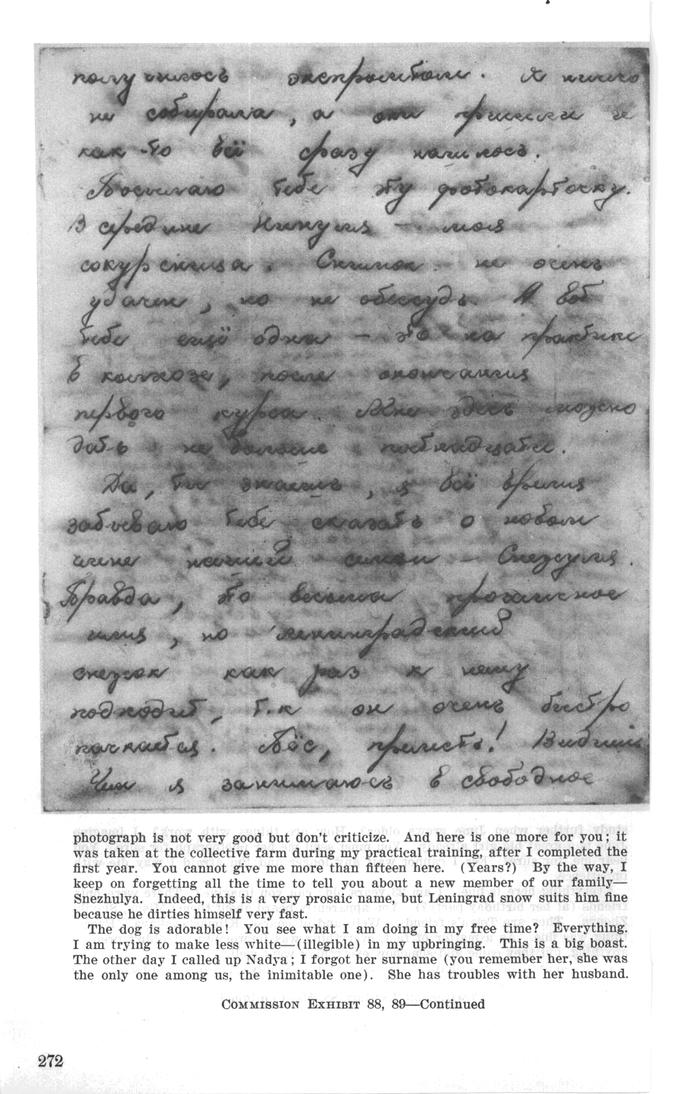 получилось экспромтом. Я никого
не собирала, а они пришли и
как-то всё сразу началось.
Посылаю тебе эту фотокарточку.
В середине Нинуля – моя
сокурсница. Снимок не очень
удачен, но не обессудь. А вот
тебе ещё один – это на практике
в колхозе, после окончания
первого курса. Мне здесь можно
дать не больше пятнадцати.
Да, ты знаешь, я всё время
забываю тебе сказать о новом
члене нашей семьи – Снежуля.
Правда, это весьма прозаисное
имя, но ленинградский
снежок как раз к нему
подходит, т.к он очень быстро
пачкается. Пёс, прелесть! Видишь
Чем я занимаюсь в свободное
photograph is not very good but don't criticize. And here is one more for you; it
was taken at the collective farm during my practical training, after I completed the
first year. You cannot give me more than fifteen here. (Years?) By the way, I
keep on forgetting all the time to tell you about a new member of our family—
Snezhulya. Indeed, this is a very prosaic name, but Leningrad snow suits him fine
because he dirties himself very fast.
The dog is adorable! You see what I am doing in my free time? Everything.
I am trying to make less white—(illegible) in my upbringing. This is a big boast.
The other day I called up Nadya; I forgot her surname (you remember her, she was
the only one among us, the inimitable one). She has troubles with her husband.
COMMISSION EXHIBIT 88, 89—Continued
272